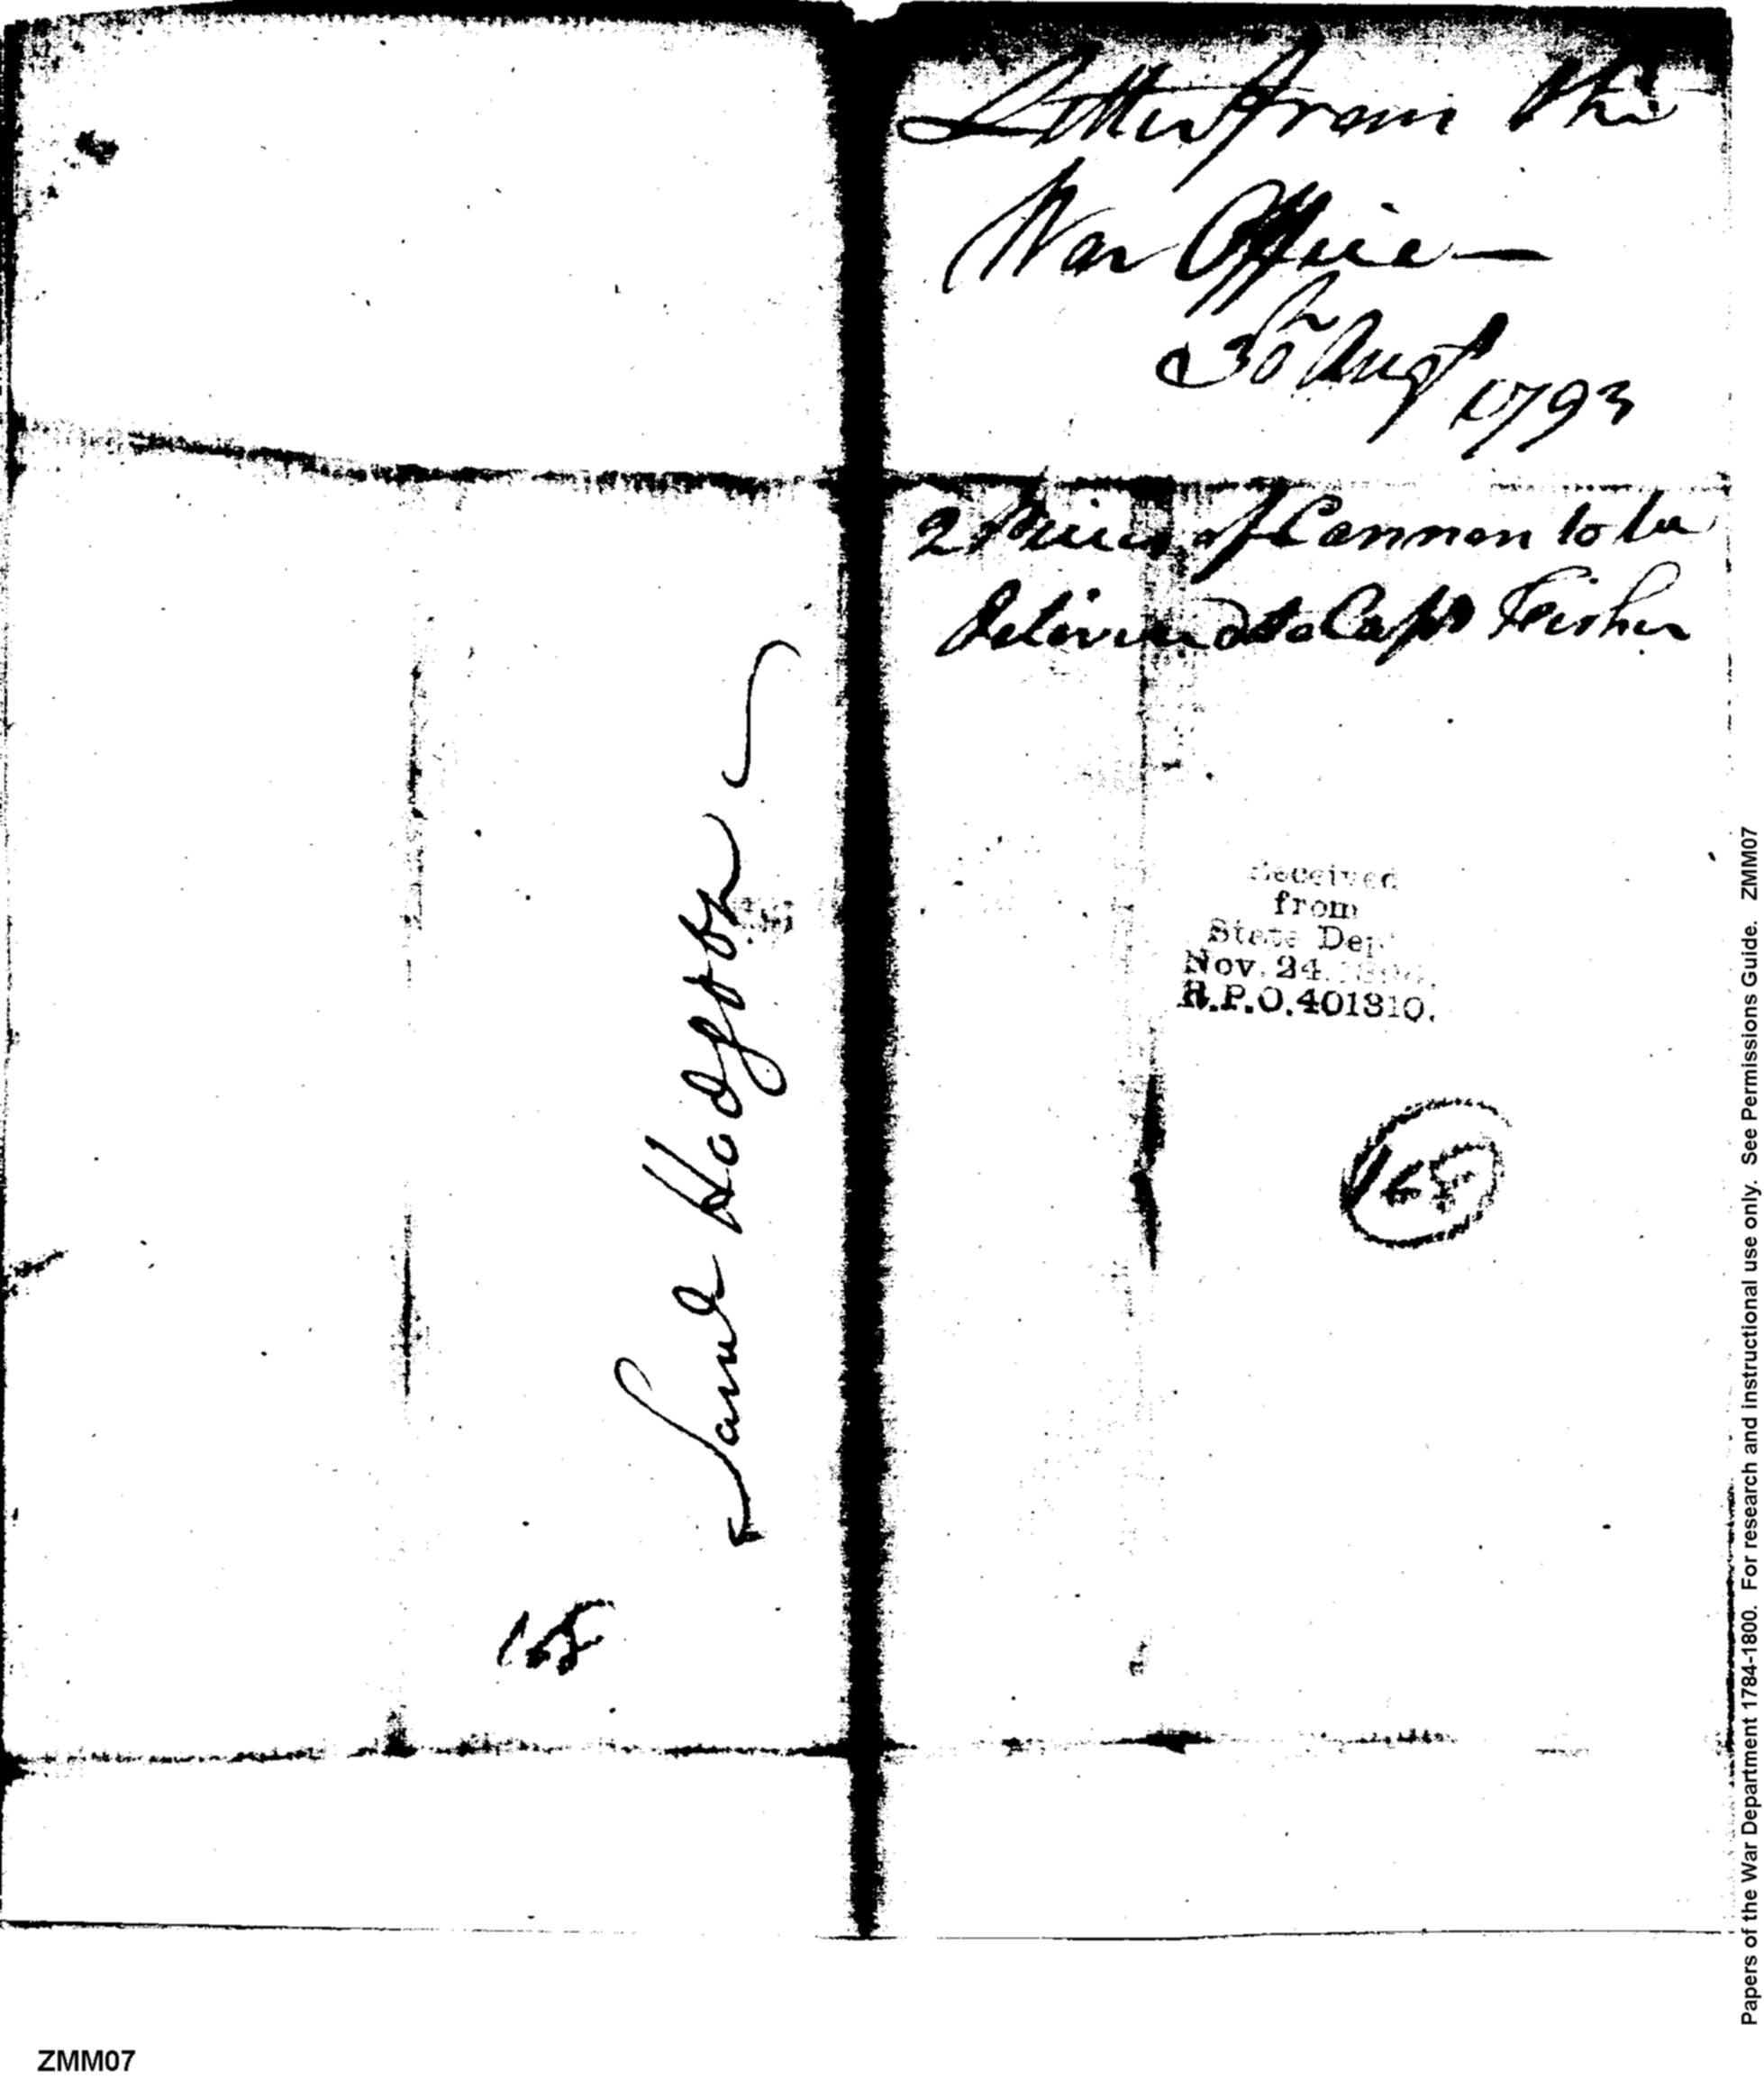 Letter from the
War Office —
30th Augt 1793
2 Pieces of Cannon to be
delivered to Capt Fisher
Received
from
State Dep
Nov. 24.
R.P.O. 401310.
168
Saml Hodgson
168
Papers of the War Department 1784-1800. For research and instructional use only. See Permissions Guide. ZMM07
ZMM07